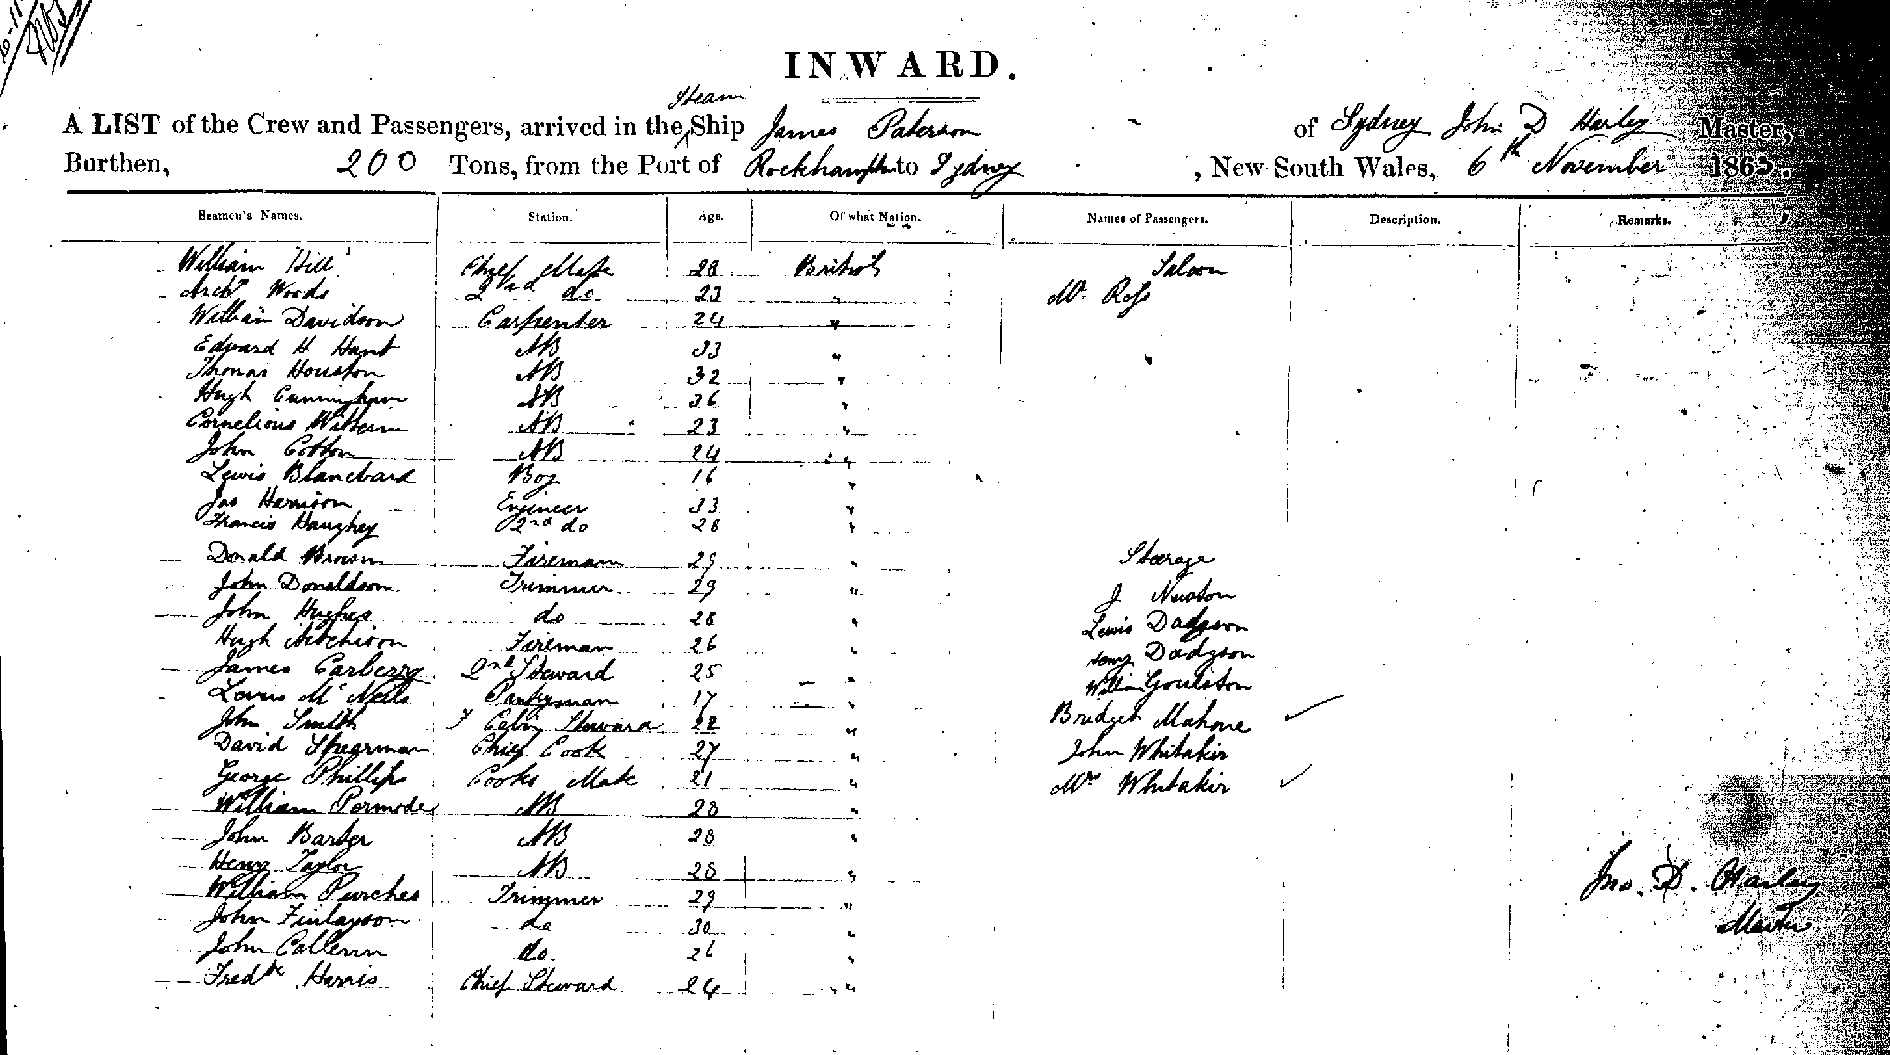 INWARD.
Steam
A LIST of the Crew and Passengers, arrived in the Ship James Paterson of Sydney John D Hailey Master,
Burthen, 200 Tons, from the Port of Rockhampton to Sydney, New South Wales, 6th November 1865.
Seamen's Names. Station. Age. Of what Nation. Names of Passengers. Description. Remarks.
William Hill Chief Mate 28 British Saloon
Archd Woods 2nd do 23 " Mr. Ross
William Davidson Carpenter 24 "
Edward H Hant AB 33 "
Thomas Houston AB 32 "
Hugh Cunningham AB 36 "
Cornelious AB 23 "
John Cotton AB 24 "
Lewis Blanchard Boy 16 "
Jas Harrison Engineer 33 "
Francis Haughey 2nd do 28 "
Donald Brown Fireman 29 " Steerage
John Donaldson Trimmer 29 " J Newton
John Hughes do 28 " Lewis Dodgson
Hugh Aitchison Fireman 26 " Henry Dodgson
James Carberry 2nd Steward 25 " William Goulston
Lewis McNeils Pantryman 17 " Bridget Mahone
John Smith F Cabin Steward 22 " John Whitaker
David Spearman Chief Cook 27 " Mrs Whitaker
George Phillips Cooks Mate 21 "
William Permode AB 28 "
John Barber AB 28 "
Henry Taylor AB 28 "
William Purches Trimmer 29 "
John Finlayson do 30 "
John Callenin do. 26 "
Fredk Harris Chief Steward 24 "
Jno. D. Hailey
Master